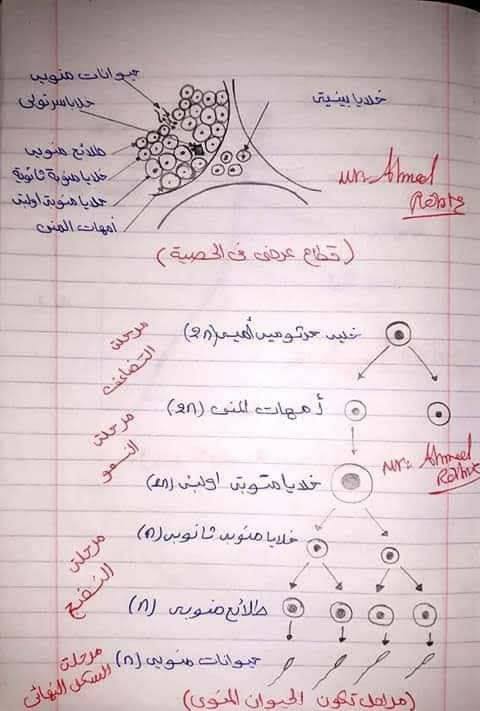 حيوانات منوية
خلايا سرتولى
خلايا بينية
طلائع منوية
خلايا منوية ثانوية
خلايا منوية اولية
أمهات المنى
mr. Ahmed
Reda
(قطاع عرضى فى الخصية)
مرحلة التضاعف
خلية جرثومية أمية (2n)
أمهات المنى (2n)
مرحلة النمو
خلايا منوية اولية (2n)
mr. Ahmed
خلايا منوية ثانوية (n)
مرحلة النضج
طلائع منوية (n)
حيوانات منوية (n)
مرحلة الشكل النهائى
(مراحل تكون الحيوان المنوى)